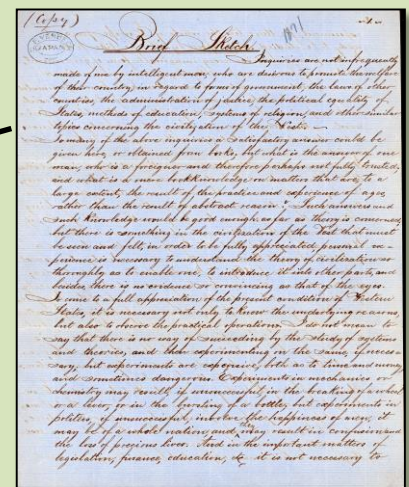 (Copy)
1871
EVERETT
Brief Sketch.
Inquiries are not infrequently
made of me by intelligent men, who are desirous to promote the welfare
of their country, in regard to forms of government, the laws of other
countries, the administration of justice, the political equality of
States, methods of education, systems of religion, and other similar
topics concerning the civilization of the West. —
To many of the above inquiries a satisfactory answer could be
given here, or obtained from books, but what is the answer of one
man, who is a foreigner and therefore perhaps not fully trusted,
and what is a mere book knowledge on matters that are, to a
large extent, the result of the practice and experience of ages,
rather than the result of abstract reason? Such answers and
such knowledge would be good enough, as far as theory is concerned,
but there is something in the civilization of the West that must
be seen and felt, in order to be fully appreciated, personal ex-
perience is necessary to understand the theory of civilization so
thoroughly as to enable one, to introduce it into other parts, and
besides there is no evidence so convincing as that of the eyes.
To come to a full appreciation of the present condition of Western
States, it is necessary not only to know the underlying reasons,
but also to observe the practical operations. I do not mean to
say that there is no way of succeeding by the study of systems
and theories, and then experimenting on the same, if neces-
sary, but experiments are expensive, both as to time and money
and sometimes dangerous. Experiments in mechanics or
chemistry may result, if unsuccessful, in the breaking of a wheel
or a lever, or in the bursting of a kettle, but experiments in
politics, if unsuccessful, involve the happiness of men, it
may be of a whole nation, and may result in confusion and
the loss of precious lives. And in the important matters of
legislation, finance, education, &c it is not necessary to